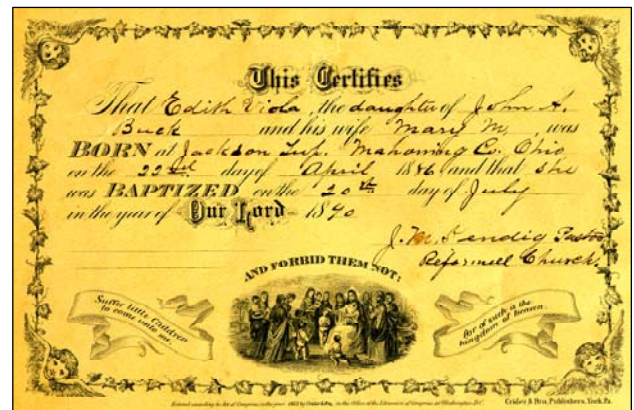 This Certifies
That Edith Viola, the daughter of John A.
Buck and his wife Mary M., was
BORN at Jackson Twp. Mahoning Co. Ohio
on the 22nd day of April 1886 and that she
was BAPTIZED on the 20th day of July
in the year of Our Lord 1890
J. M. Pastor
Reformed Church
AND FORBID THEM NOT:
Suffer little Children
to come unto me,
for of such is the
kingdom of heaven.
Entered according to Act of Congress in the year by Crider & Bro., in the Office of the Librarian of Congress at Washington D.C.
Crider & Bro. Publishers, York, Pa.